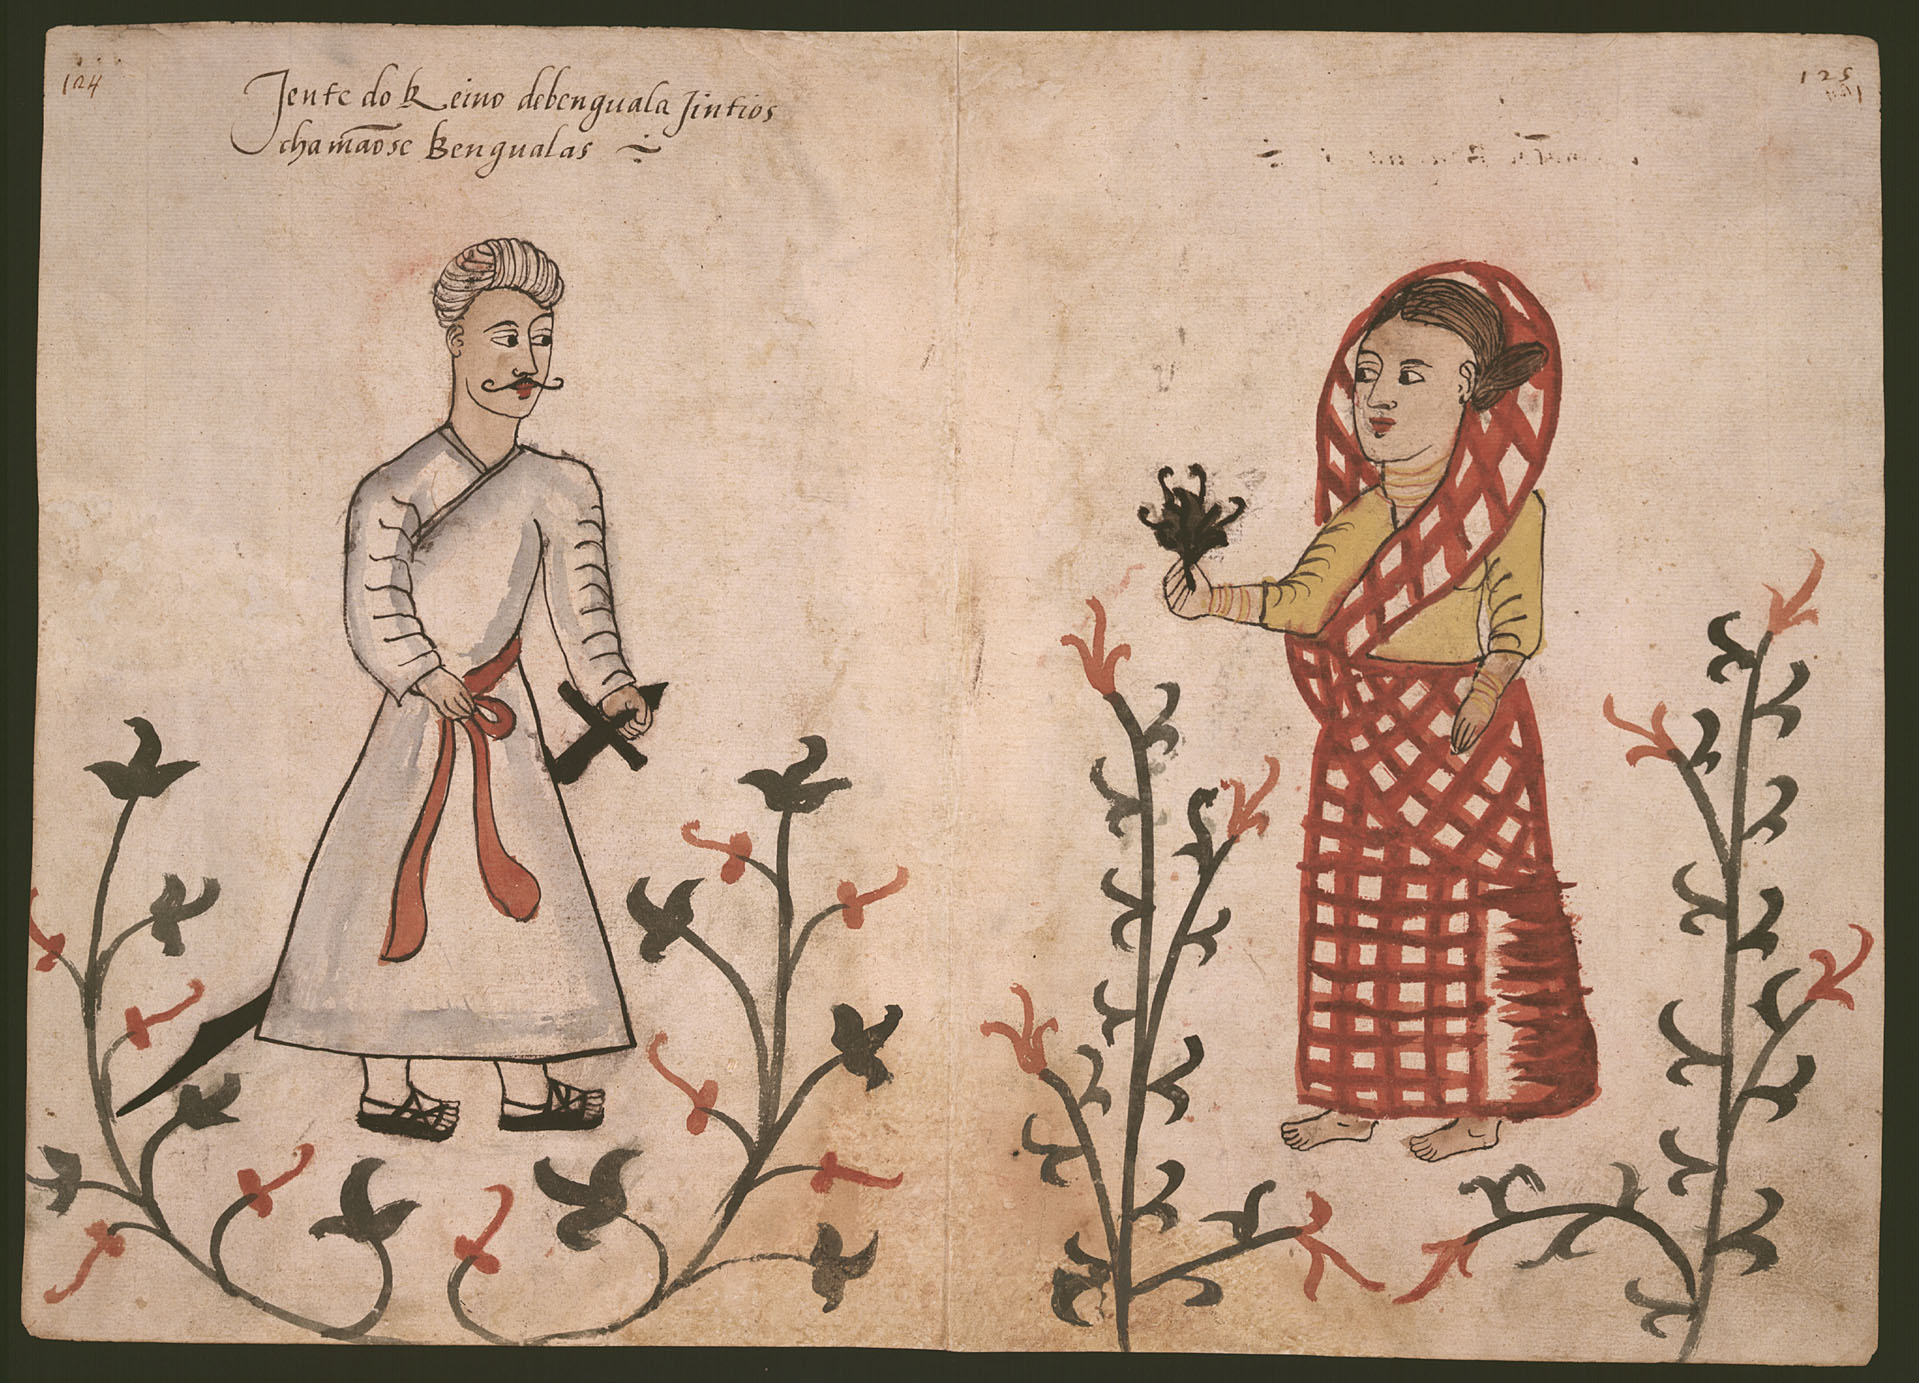 124
Jente do Reino debenguala Jintios
chamãose Bengualas
125